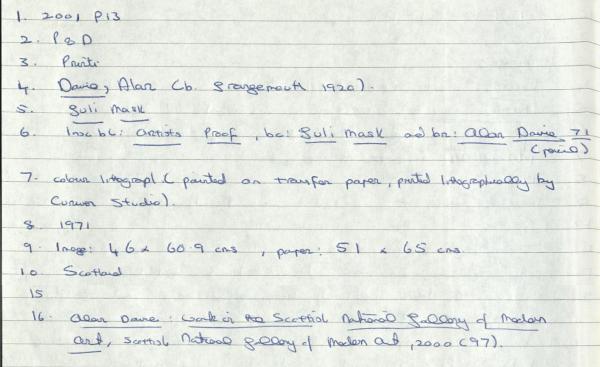 1. 2001 P13
2. P&D
3. Prints
4. Davie, Alan (b. Grangemouth 1920).
5. Zuli Mask
6. Insc bl: Artists Proof, bc: Zuli Mask and br: Alan Davie 71
(pencil)
7. colour lithograph (painted on transfer paper, printed lithographically by
Curwen Studio).
8. 1971
9. Image: 46 x 60.9 cms, paper: 51 x 65 cms.
10. Scotland
15
16. Alan Davie: work in the Scottish National Gallery of Modern
Art, Scottish National Gallery of Modern Art, 2000 (97).